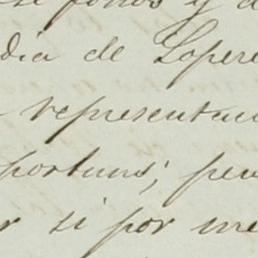 fonos y d
dia de Lopere
representaci
portuns; per
r si por me